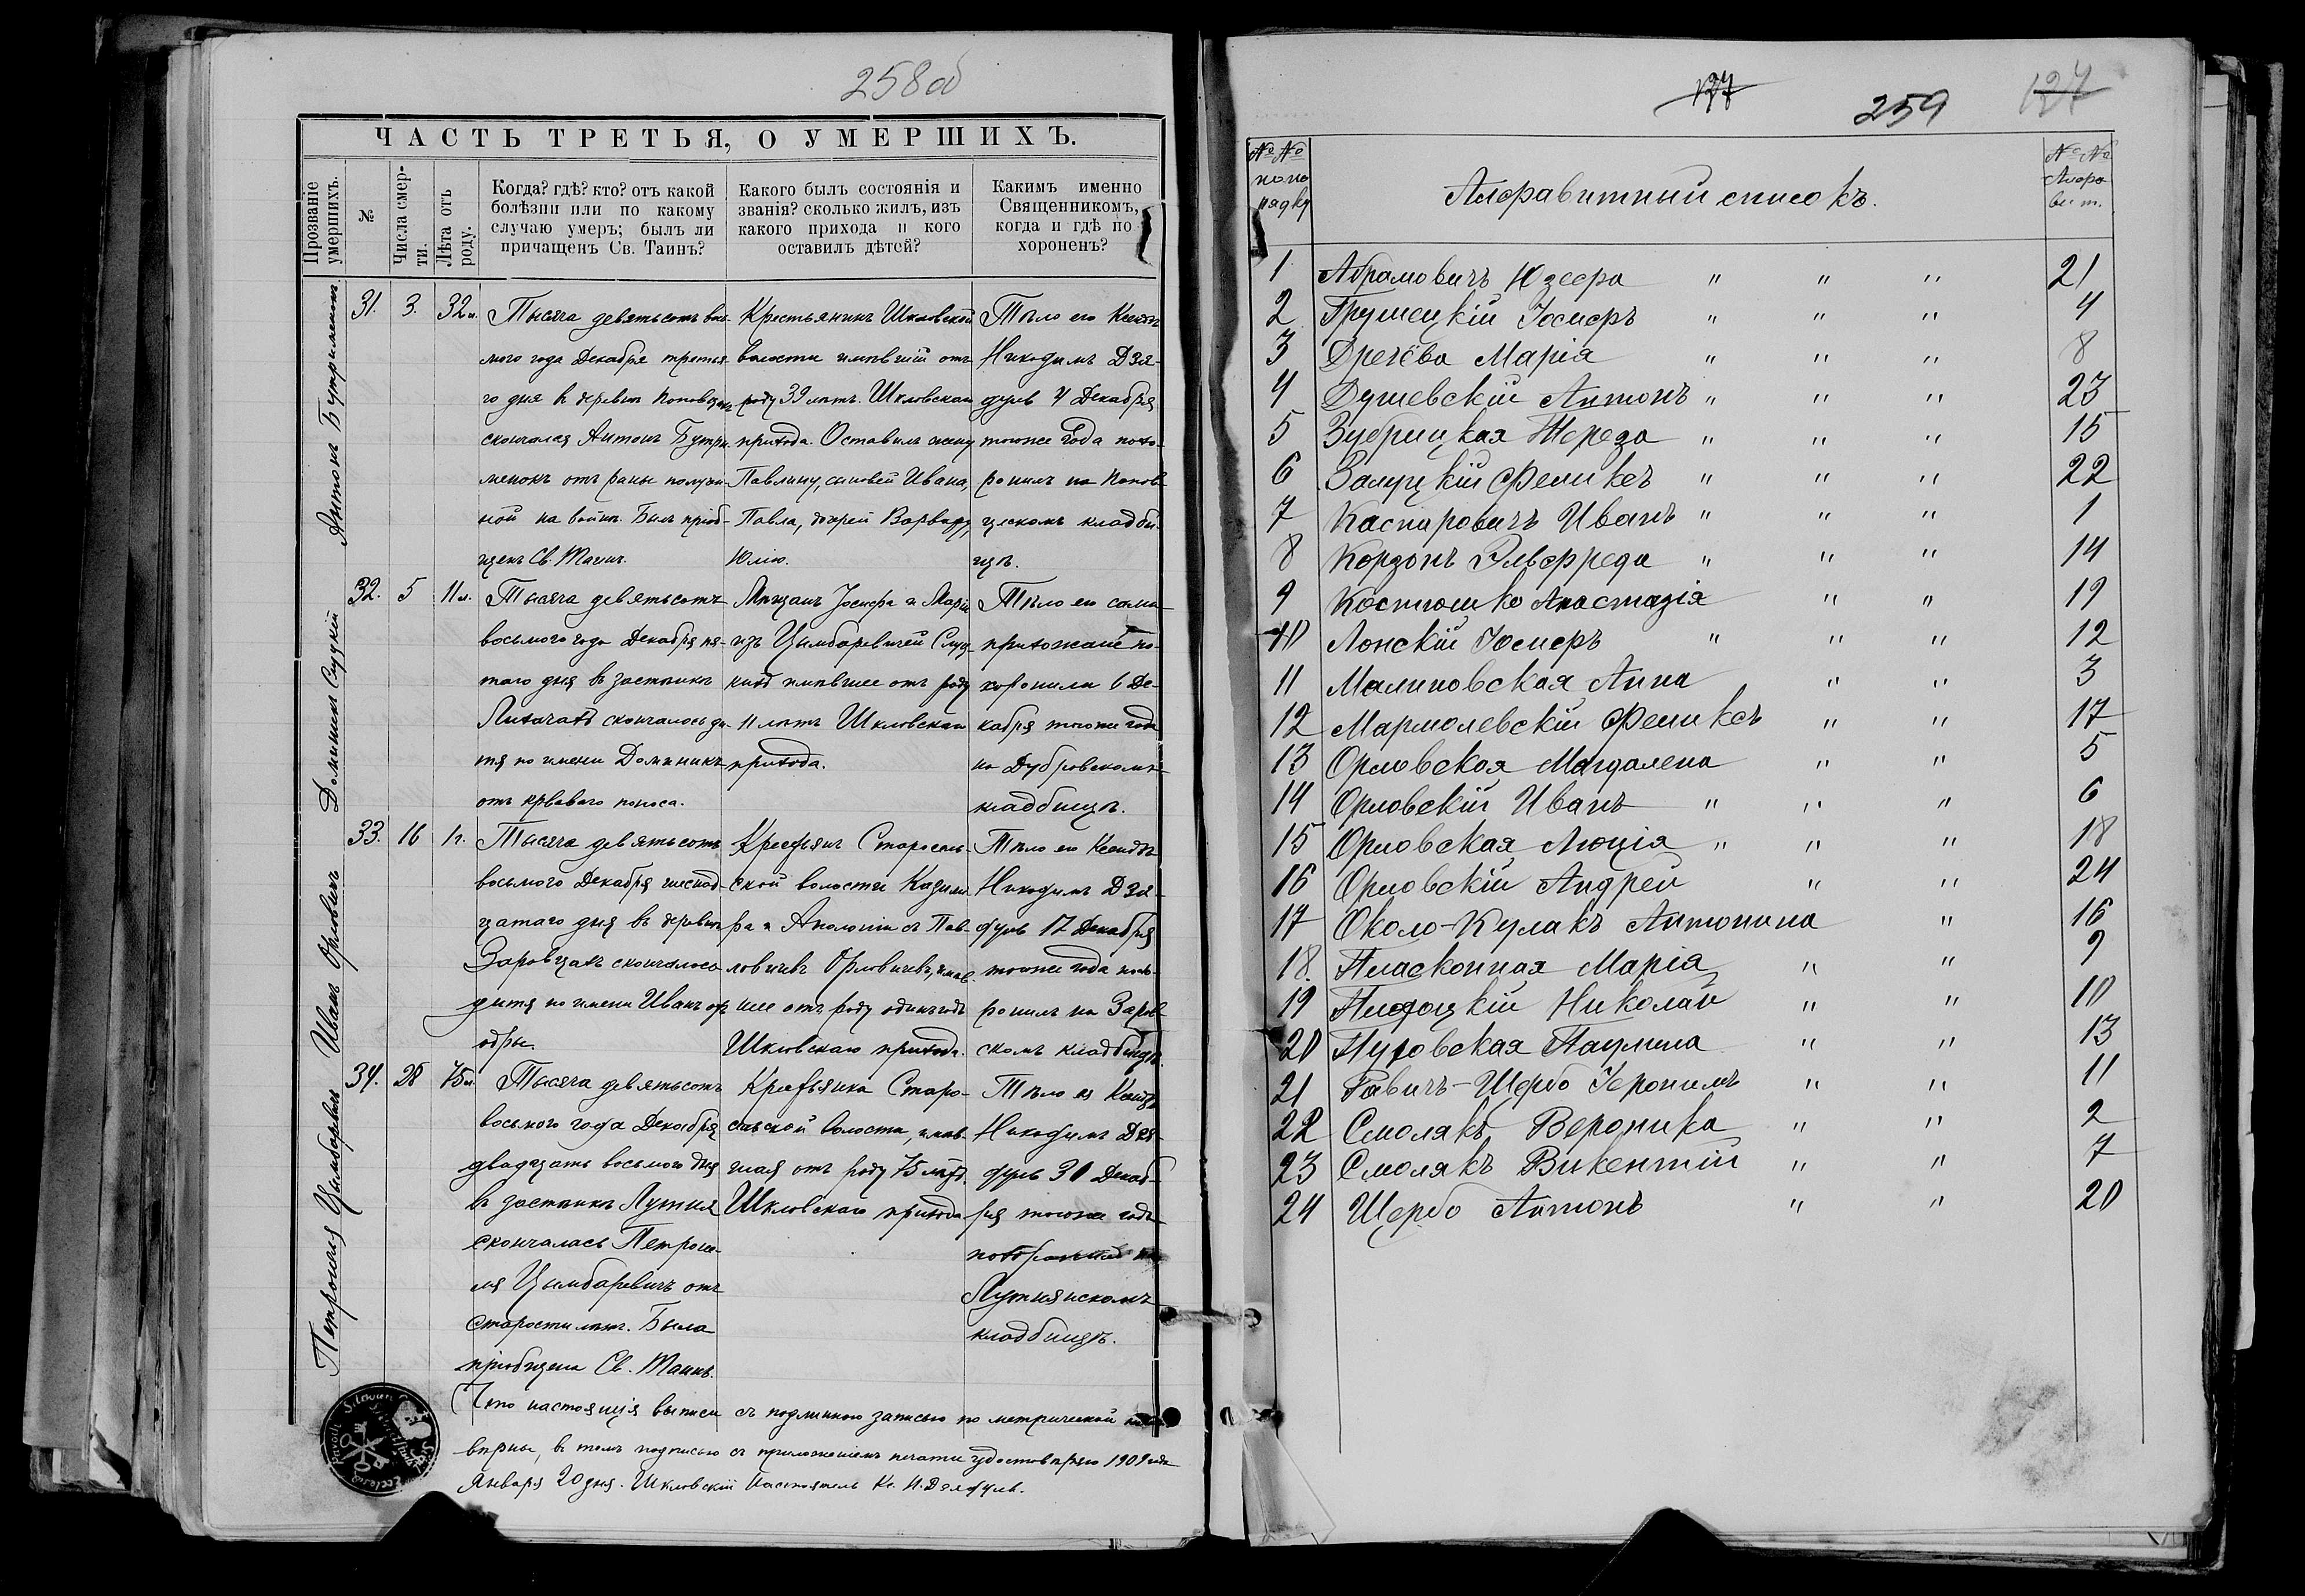 258об
ЧАСТЬ ТРЕТЬЯ, О УМЕРШИХЪ.
Прозваніе умершихъ.
№
Числа смерти.
Лѣта отъ роду.
Когда? гдѣ? кто? отъ какой
болѣзни или по какому
случаю умеръ; былъ ли
причащенъ Св. Таинъ?
Какого былъ состоянія и
званія? сколько жилъ, изъ
какого прихода и кого
оставилъ дѣтей?
Какимъ именно
Священникомъ,
когда и гдѣ по
хороненъ?
Антонъ Бутрименокъ
31. 3. 32 л.
Тысяча девятьсотъ вось-
мого года Декабря третья-
го дня въ деревни
скончался Антонъ Бутри-
менокъ отъ раны получен-
ной на войнѣ. Былъ пріоб-
щенъ Св. Таинъ.
Крестьянинъ Шкловской
волости имѣвшій отъ
роду 39 лѣтъ. Шкловскаго
прихода. Оставилъ жену
Павлину, сыновей Ивана,
Павла, дочерей Варвару,
Юлію.
Тѣло его Ксендзъ
Никодимъ Дзя-
дуль 4 Декабря
тогоже года похо-
ронилъ на Попов-
щскомъ кладби-
щѣ.
Доминикъ Слуцкій
32. 5 11 л.
Тысяча девятьсотъ
восьмого года Декабря пя-
таго дня въ застѣнкѣ
скончалось ди-
тя по имени Доминикъ
отъ кроваваго поноса.
Мѣщанъ Іосифа и Маріи
изъ Цымборевичей Слуц-
кихъ имѣвшее отъ роду
11 лѣтъ Шкловскаго
прихода.
Тѣло его сами
прихожане по-
хоронили 6 Де-
кабря тогоже года
на Дубровскомъ
кладбищѣ.
Иванъ Орловичъ
33. 16 1 г.
Тысяча девятьсотъ
восьмого Декабря шестнад-
цатаго дня въ деревни
Заровцахъ скончалось
дитя по имени Иванъ
Крестьянъ Старосель-
ской волости Казими-
ра и Аполоніи съ Пав-
ловичевъ Орловичевъ, имѣв-
шее отъ роду одинъ годъ
Шкловскаго прихода.
Тѣло его Ксендзъ
Никодимъ Дзя-
дуль 17 Декабря
тогоже года похо-
ронилъ на Заров-
скомъ кладбищѣ.
Петронеля Цымборевичъ
34. 28 75 л.
Тысяча девятьсотъ
восьмого года Декабря
двадцать восьмого дня
въ застѣнкѣ Лутня
скончалась Петроне-
ля Цымборевичъ отъ
старости лѣтъ. Была
пріобщена Св. Таинъ.
Крестьянка Старо-
сельской волости, имѣв-
шая отъ роду 75 лѣтъ.
Шкловскаго прихода
Тѣло ея Ксендзъ
Никодимъ Дзя-
дуль 30 Декаб-
ря тогоже года
похоронилъ на
Лутнянскомъ
кладбищѣ.
Что настоящія выписи съ подлинною записью по метрической книгѣ
вѣрны, въ томъ подписью съ приложеніемъ печати удостовѣряю 1909 года
Января 20 дня. Шкловскій Настоятель Кс. Н. Дзядуль.
127 259 127
№№ по порядку
Алфавитный списокъ.
№№ Алфавит.
1 Абрамовичъ Юзефа " " " 21
2 Грушецкій Іосифъ " " " 4
3 Дречёва Марія " " " 8
4 Душевскій Антонъ " " " 23
5 Зубрицкая Тереза " " " 15
6 Залуцкій Феликсъ " " " 22
7 Каспировичъ Иванъ " " " 1
8 Корзонъ Эльфреда " " " 14
9 Костюшко Анастазія " " 19
10 Лонскій Іосифъ " " " 12
11 Малиновская Анна " " 3
12 Мармолевскій Феликсъ " " 17
13 Орловская Магдалена " " 5
14 Орловскій Иванъ " " " 6
15 Орловская Люція " " " 18
16 Орловскій Андрей " " 24
17 Около-Кулакъ Антонина " 16
18. Пласконная Марія " " 9
19 Николай " " 10
20 Паулина " " 13
21 Равичъ-Щербо Іеронимъ " " 11
22 Смолякъ Вероника " " 2
23 Смолякъ Викентій " " 7
24 Щербо Антонъ " " 20